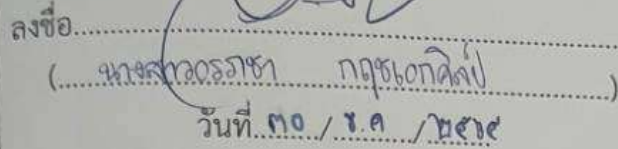 ลงชื่อ
( นางสาวอรรถชา กฤชเอกศิลป์ )
วันที่ ๓๐ / ธ.ค / ๒๕๖๕